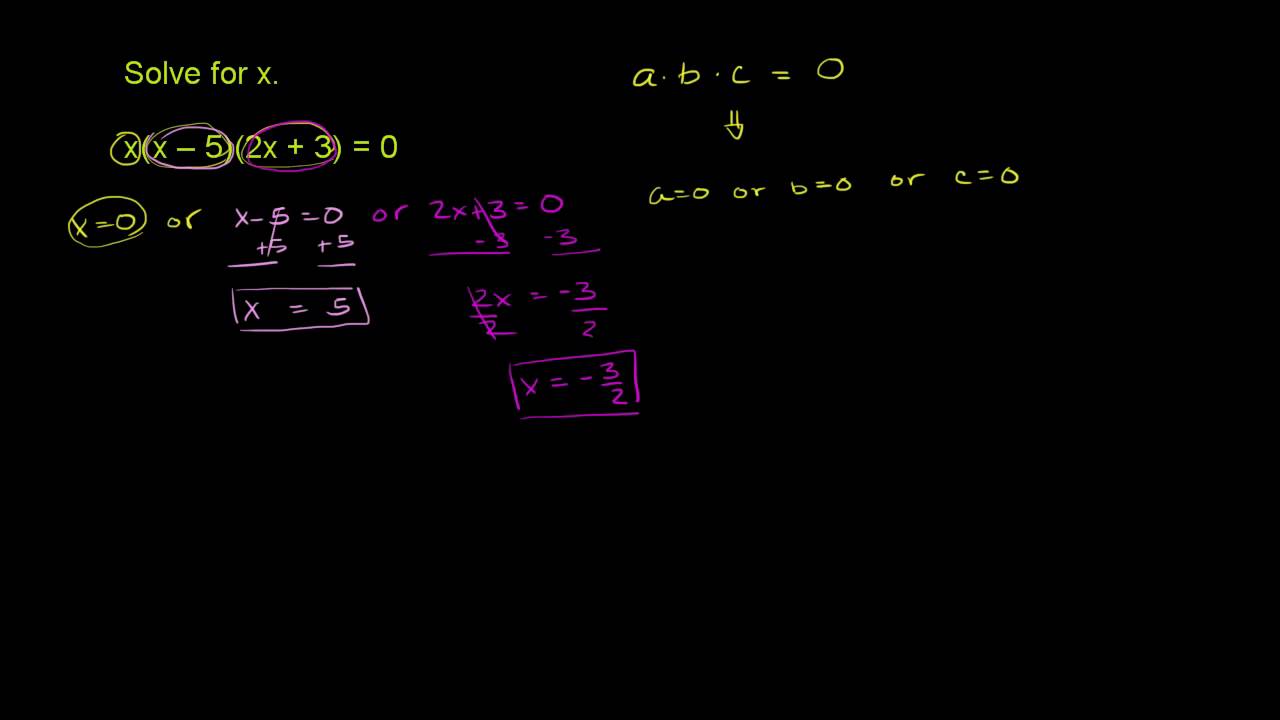 Solve for x.
x(x – 5)(2x + 3) = 0
x=0 or x-5=0 or 2x+3=0
+5 +5 -3 -3
x = 5
2x = -3
2 2
x = -3/2
a·b·c = 0
⇓
a=0 or b=0 or c=0